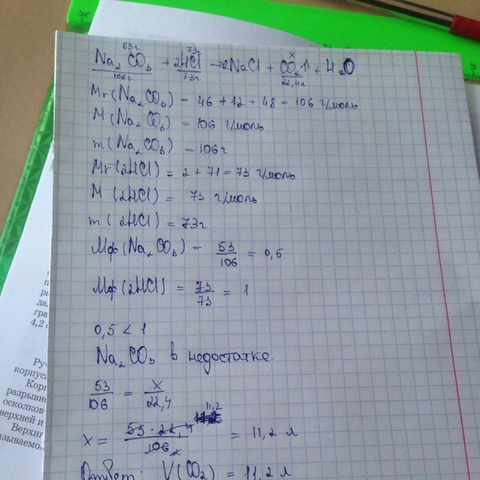 53г 73г x
Na₂CO₃ + 2HCl → 2NaCl + CO₂↑ + H₂O
106г 73г 22,4л
Mr(Na₂CO₃) = 46 + 12 + 48 = 106 г/моль
M(Na₂CO₃) = 106 г/моль
m(Na₂CO₃) = 106г
Mr(2HCl) = 2 + 71 = 73 г/моль
M(2HCl) = 73 г/моль
m(2HCl) = 73г
Мф(Na₂CO₃) = 53/106 = 0,5
Мф(2HCl) = 73/73 = 1
0,5 < 1
Na₂CO₃ в недостатке
53/106 = x/22,4
x = 53 · 22,4/106 = 11,2 л
Ответ: V(CO₂) = 11,2 л
4,2
Ру
корпуса
Кор
разрывно
осколков
верхней и
Верхн
азываемо